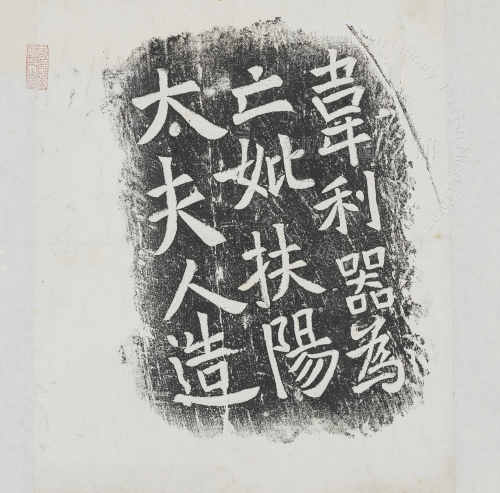 韋利器為
亡妣扶陽
太夫人造